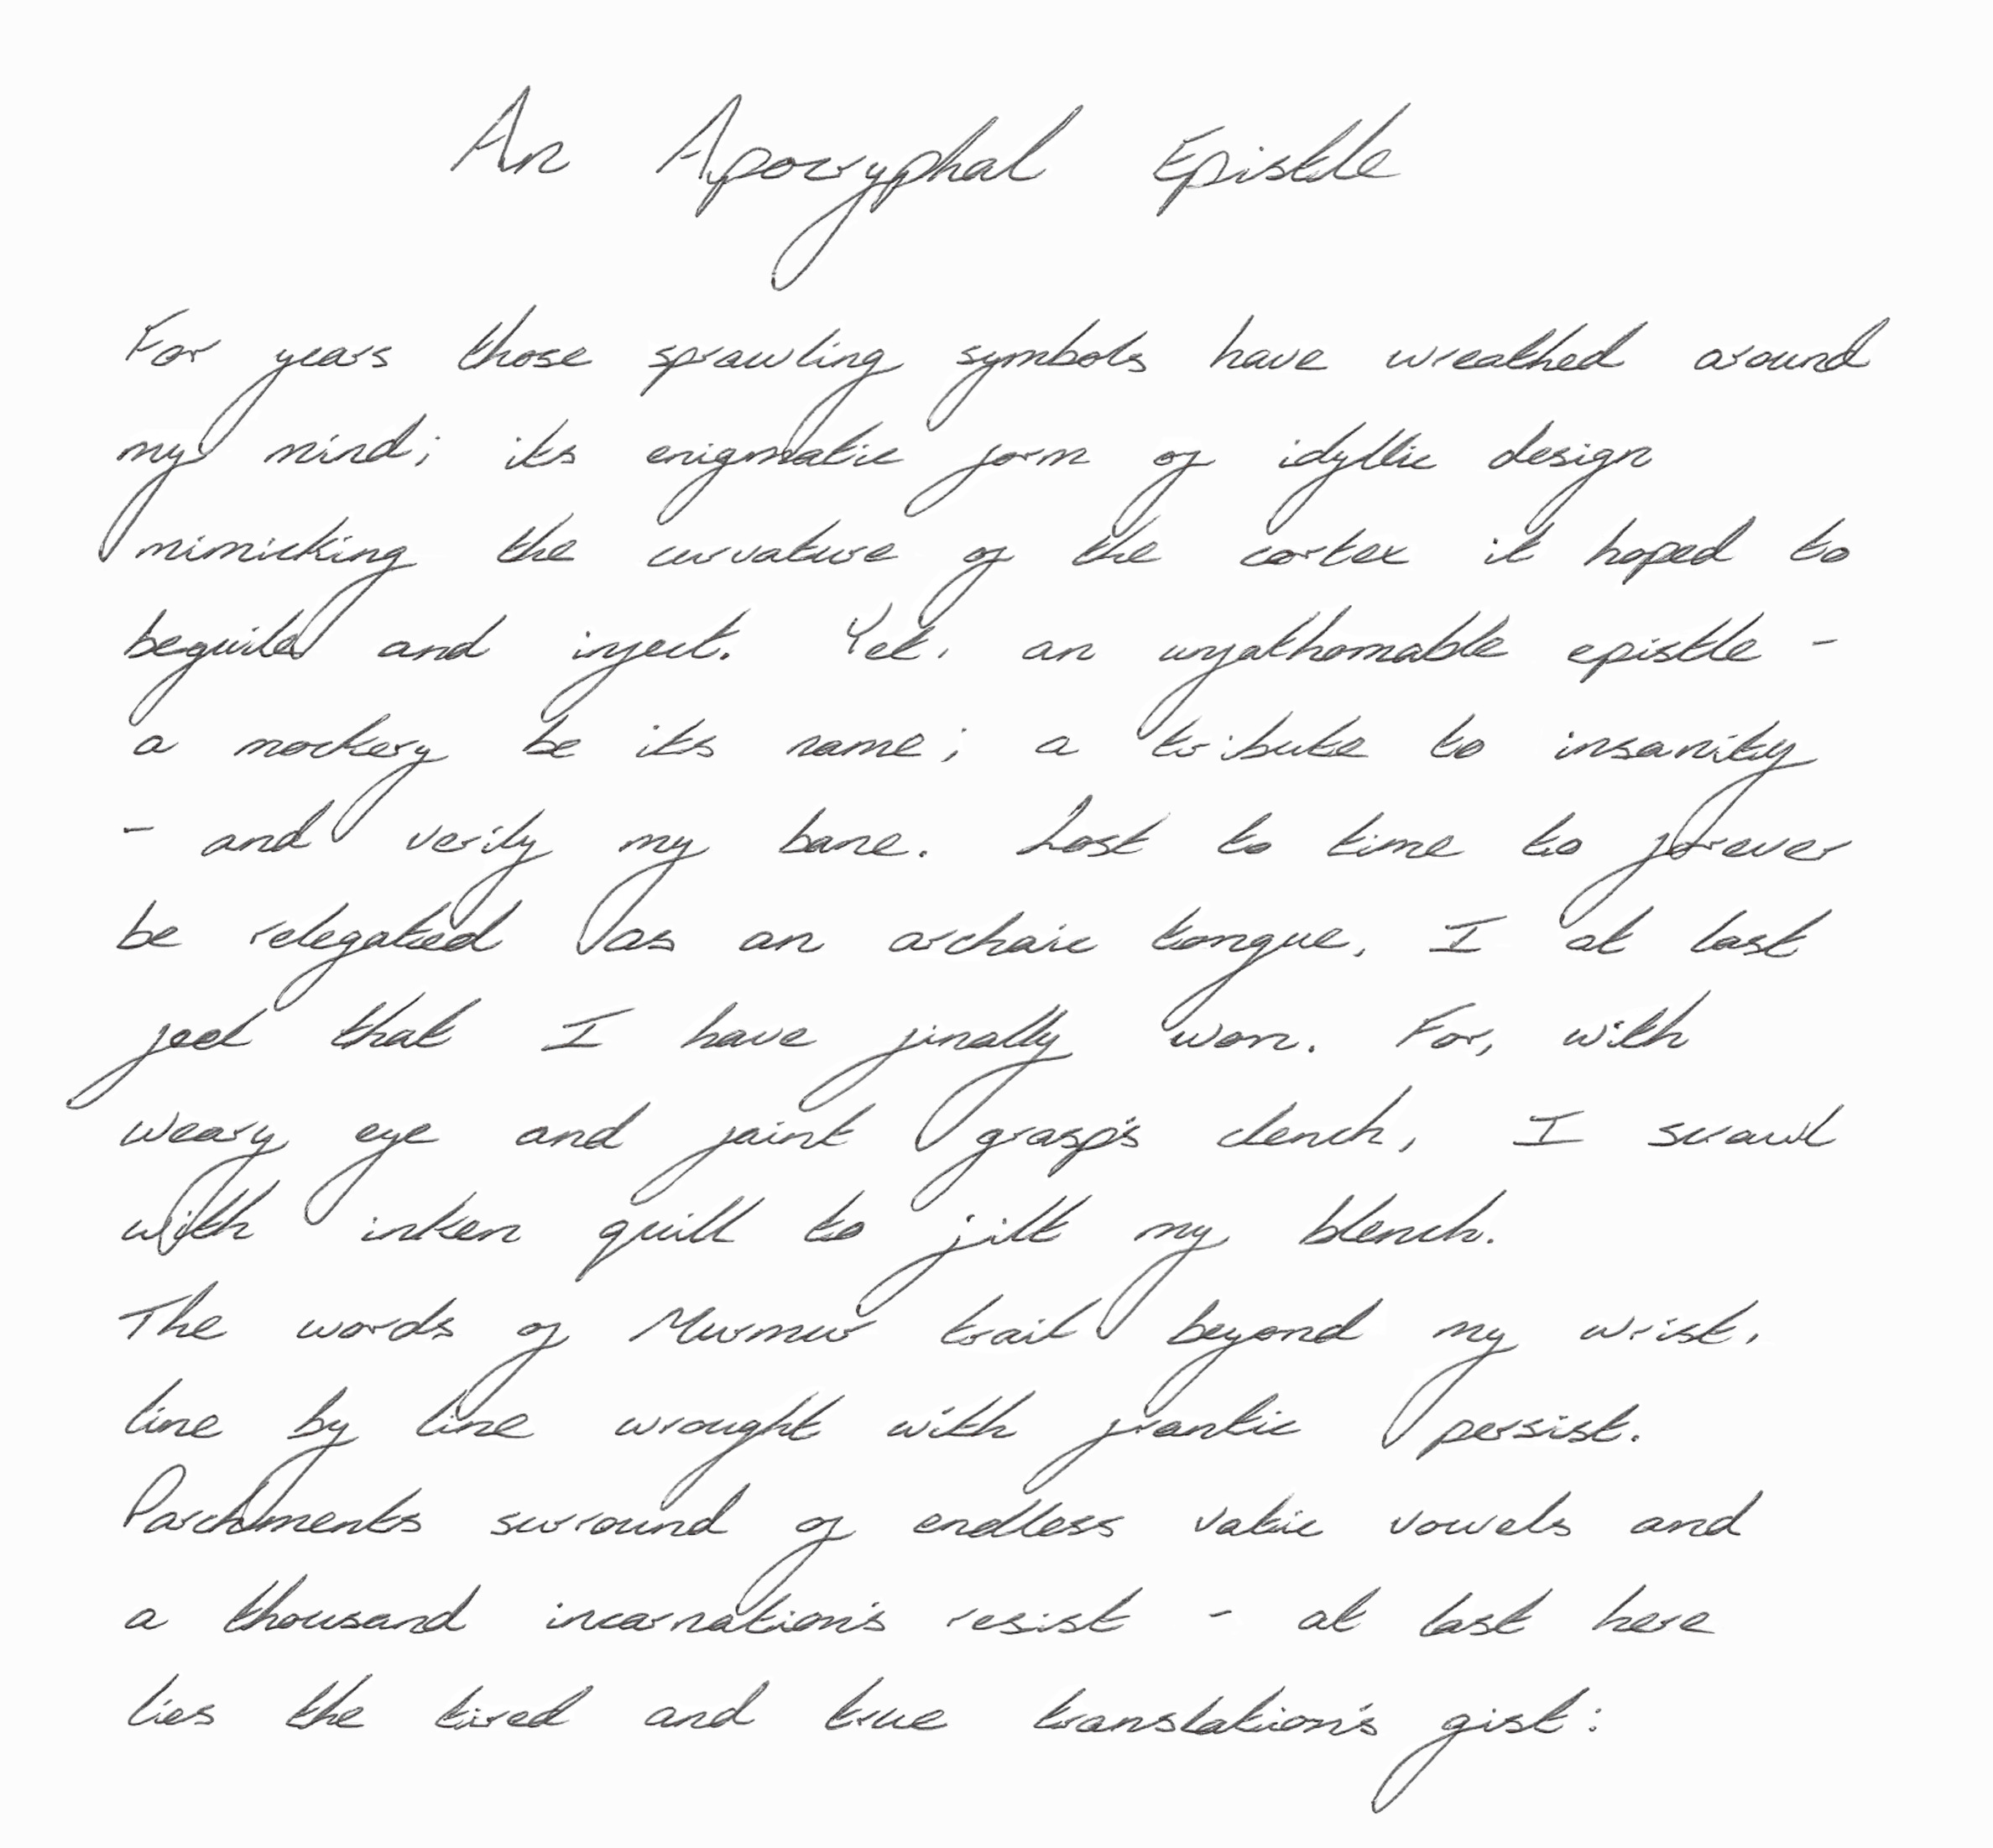 An Apocryphal Epistle
For years those sprawling symbols have wreathed around
my mind; its enigmatic form of idyllic design
mimicking the curvature of the cortex it hoped to
beguile and inject. Yet, an unfathomable epistle -
a mockery be its name; a tribute to insanity
- and verily my bane. Lost to time to forever
be relegated as an archaic tongue, I at last
feel that I have finally won. For, with
weary eye and faint grasp's clench, I scrawl
with inken quill to jilt my blench.
The words of Murmur trail beyond my wrist,
line by line wrought with frantic persist.
Parchments surround of endless vatic vowels and
a thousand incarnation's resist - at last here
lies the tired and true translation's gist: